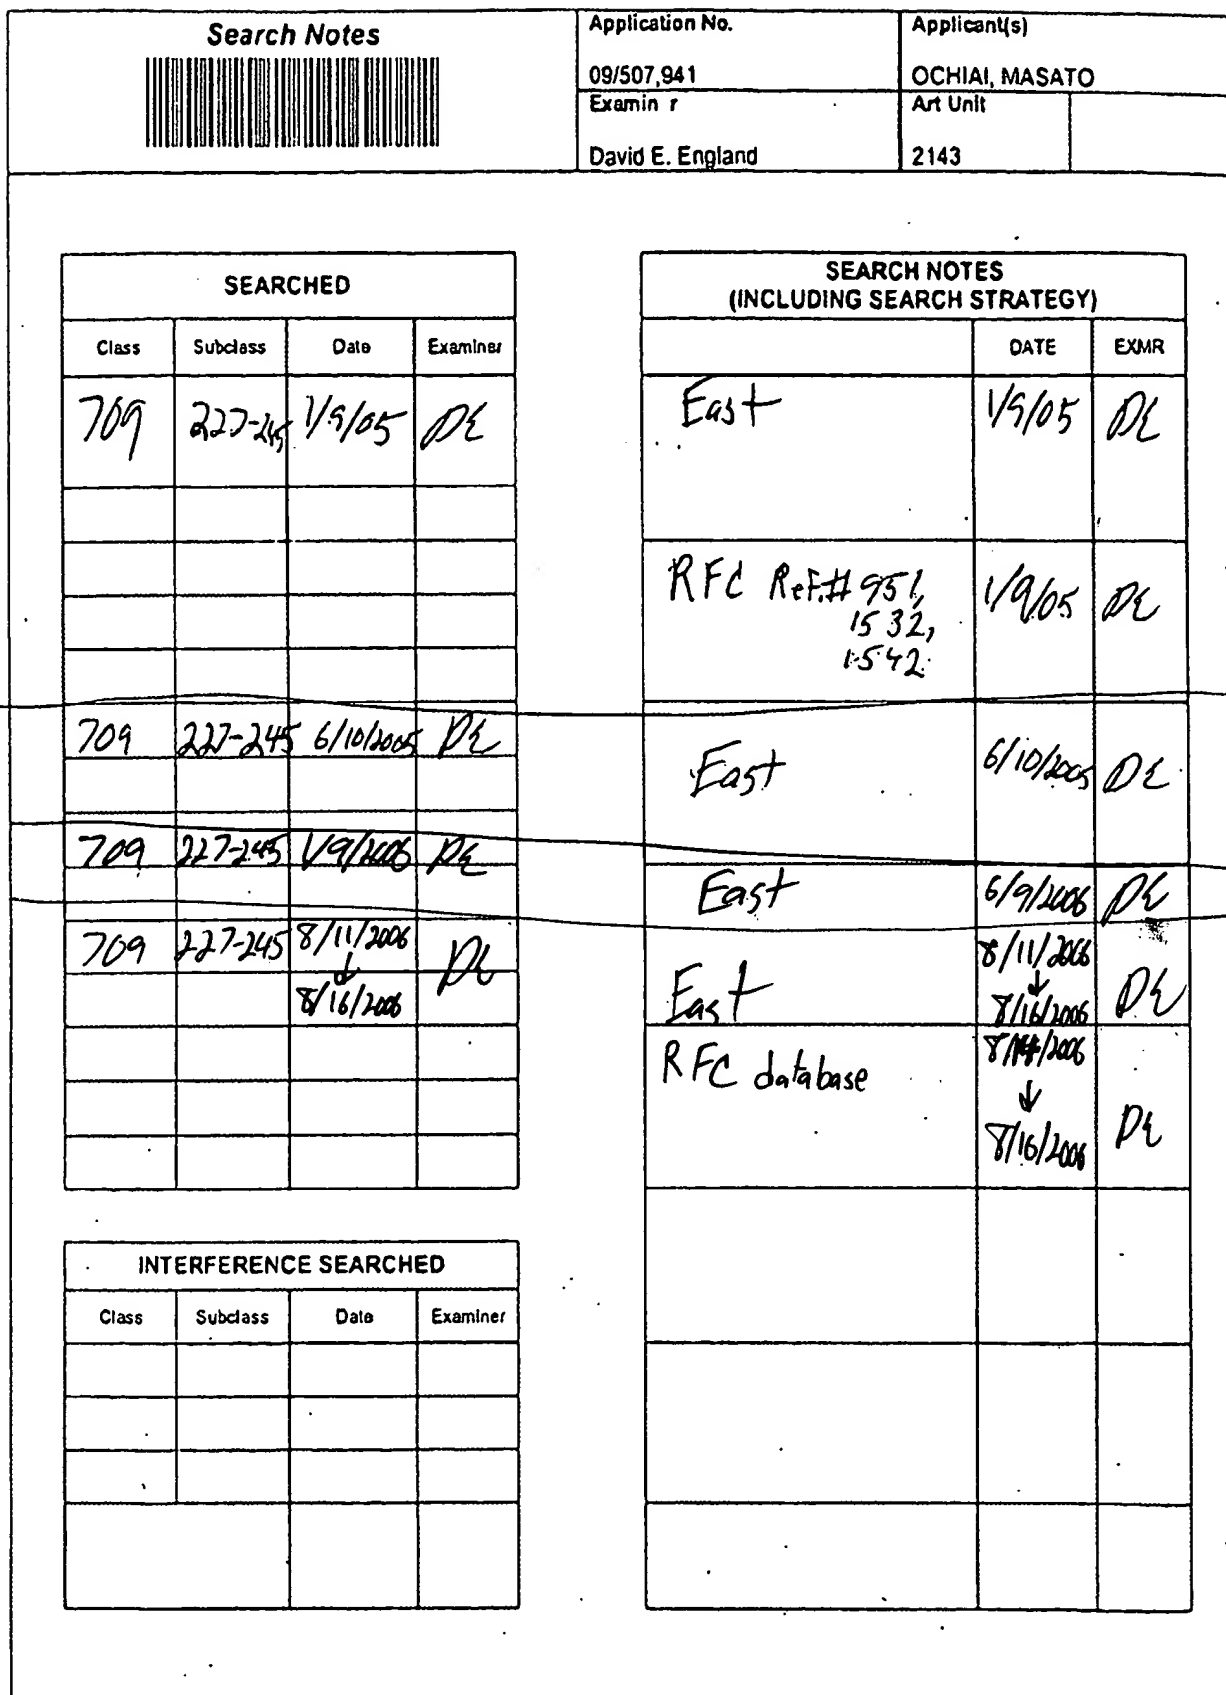 Search Notes
Application No.
09/507,941
Applicant(s)
OCHIAI, MASATO
Examin r
David E. England
Art Unit
2143
SEARCHED
Class Subclass Date Examiner
709 227-245 1/9/05 DE
709 227-245 6/10/2005 DE
709 227-245 1/9/2006 DE
709 227-245 8/11/2006 DE
↓
8/16/2006
INTERFERENCE SEARCHED
Class Subclass Date Examiner
SEARCH NOTES
(INCLUDING SEARCH STRATEGY)
DATE EXMR
East 1/9/05 DE
RFC Ref.# 951, 1/9/05 DE
1532,
1542
East 6/10/2005 DE
East 6/9/2006 DE
8/11/2006
↓
East 8/16/2006 DE
RFC database 8/14/2006
↓
8/16/2006 DE